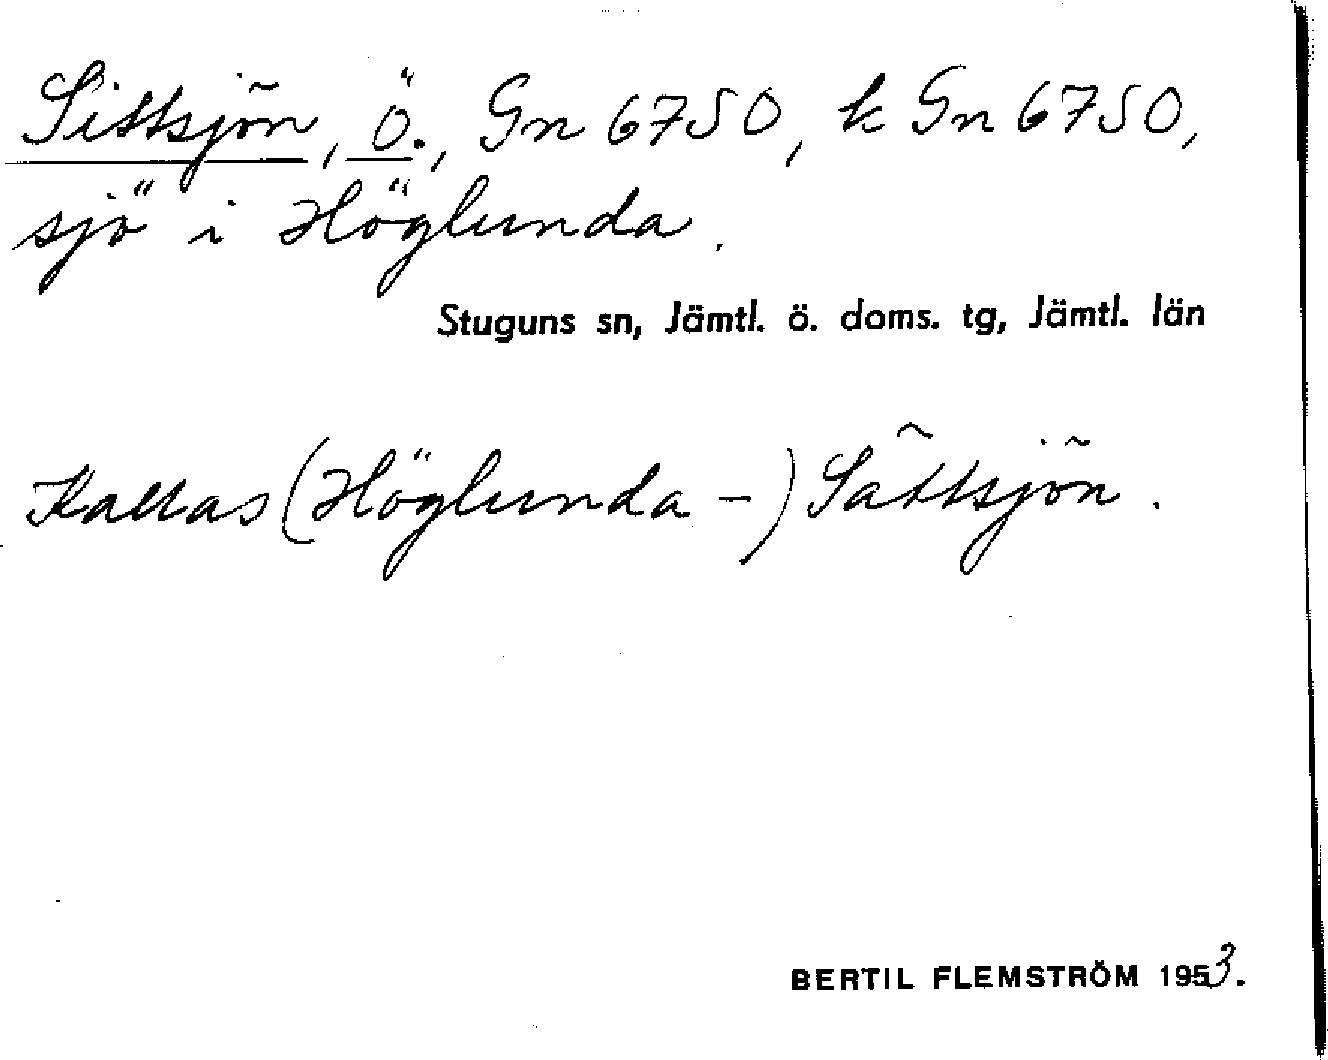 Sittsjön, Ö., Gn 6750, k Gn 6750,
sjö i Höglunda.
Stuguns sn, Jämtl. ö. doms. tg, Jämtl. län
Kallas (Höglunda-) Sättsjön.
BERTIL FLEMSTRÖM 1953.